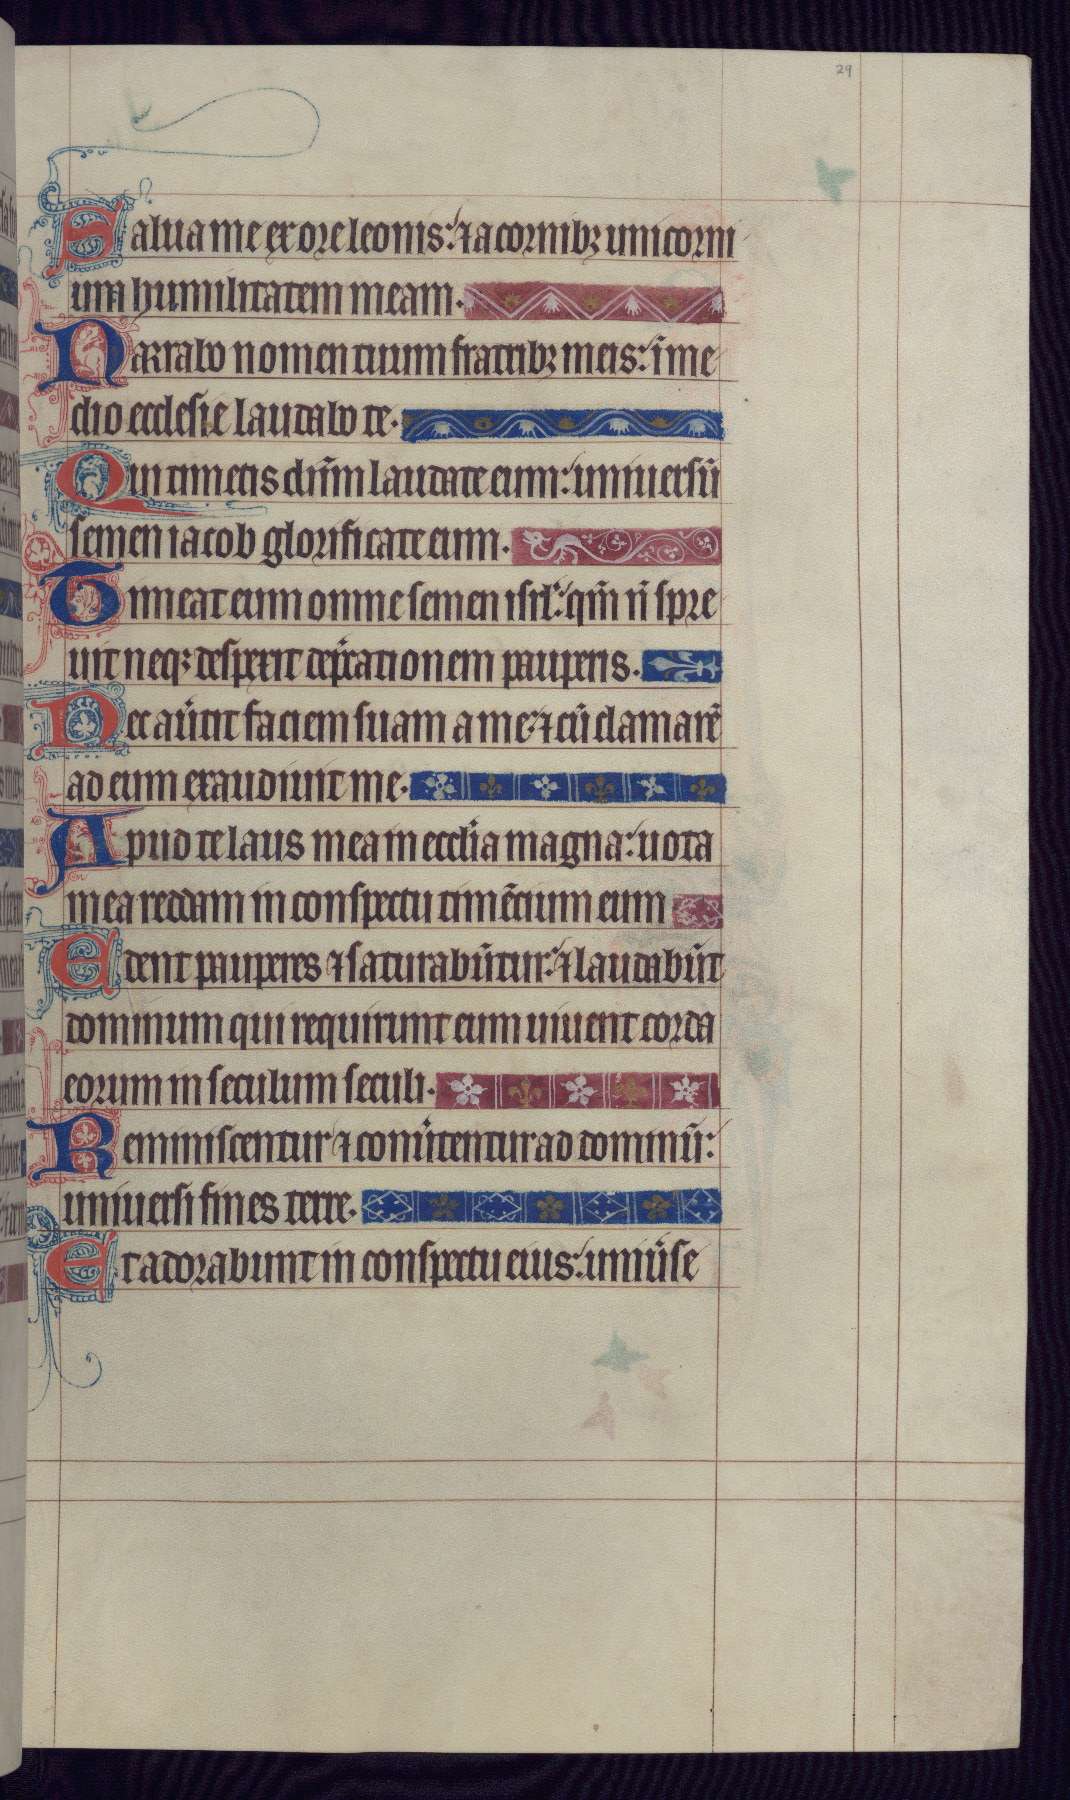 29
Salua me ex ore leonis: ⁊ a cornibꝫ unicorni
um humilitatem meam.
Narrabo nomen tuum fratribꝫ meis: ī me
dio ecclesie laudabo te.
Qui timetis dn̄m laudate eum: uniuersū
semen iacob glorificate eum.
Timeat eum omne semen isrl̄: qm̄ n̄ spre
uit neqꝫ despexit dep̄cationem pauperis.
Nec au̾tit faciem suam a me: ⁊ cū clamarē
ad eum exaudiuit me.
Apud te laus mea in eccl̄ia magna: uota
mea reddam in conspectu timētium eum
Edent pauperes ⁊ saturabūtur: ⁊ laudabūt
dominum qui requirunt eum uiuent corda
eorum in seculum seculi.
Reminiscentur ⁊ conu̾tentur ad dominū:
uniuersi fines terre.
Et adorabunt in conspectu eius: uniu̾se